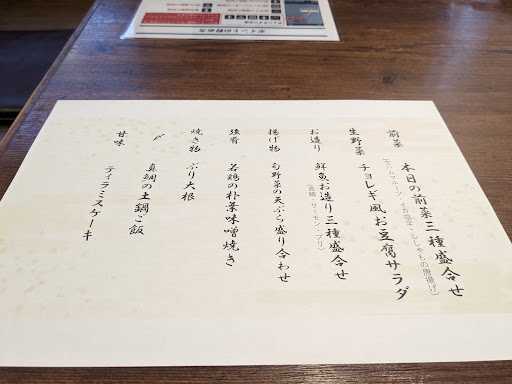 前菜　本日の前菜三種盛合せ
生野菜　チョレギ風お豆腐サラダ
お造り　鮮魚お造り三種盛合せ
（真鯛・サーモン・ブリ）
揚げ物　旬野菜の天ぷら盛り合わせ
強肴　若鶏の朴葉味噌焼き
焼き物　ぶり大根
〆　真鯛の土鍋ご飯
甘味　ティラミスケーキ